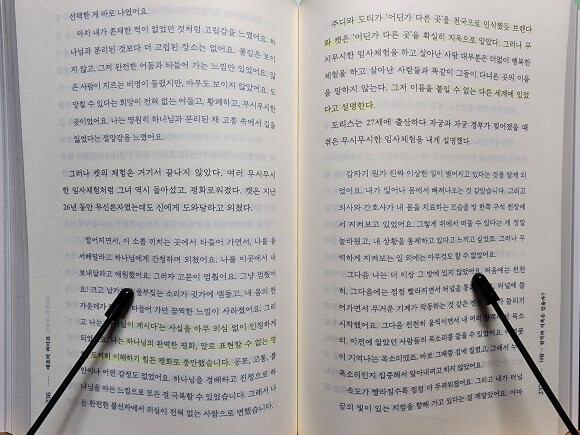 선택한 게 바로 나였어요.
마치 내가 존재한 적이 없었던 것처럼 고립감을 느꼈어요. 하
나님과 분리된 것보다 더 고립된 장소는 없어요. 불길은 보이
지 않고, 그저 완전한 어둠과 타들어 가는 느낌만 있었어요. 많
은 사람이 지르는 비명이 들렸지만, 아무도 보이지 않았어요. 도
망칠 수 있다는 희망이 전혀 없는 어둡고, 황폐하고, 무시무시한
곳이었어요. 나는 영원히 하나님과 분리된 채 고통 속에서 길을
잃었다는 절망감을 느꼈어요.
그러나 캣의 체험은 거기서 끝나지 않았다. 여러 무시무시
한 임사체험처럼 그녀 역시 돌아섰고, 평화로워졌다. 캣은 지난
26년 동안 무신론자였는데도 신에게 도와달라고 외쳤다.
떨어지면서, 이 소름 끼치는 곳에서 타들어 가면서, 나를 용
서해달라고 하나님에게 간청하며 외쳤어요. 나를 이곳에서 내
보내달라고 애원했어요. 그러자 고문이 멈췄어요. 그냥 멈췄어
요! 크고 날카 울부짖는 소리가 귓가에 맴돌고, 내 몸의 한
가운데가 타들어 가던 끔찍한 느낌이 사라졌어요. 그리
고 나는 하나님이 계시다'는 사실을 아무 의심 없이 인정하게
되었어요. 나는 완벽한 평화, 말로 표현할 수 없는 평
도저히 이해하기 힘든 평화로 충만했습니다. 공포, 고통, 불
안이나 어떤 감정도 없었어요. 하나님을 경배하고 진정으로 하
나님을 아는 느낌으로 모든 걸 극복할 수 있었습니다. 그래서 나
는 완전한 불신자에서 의심이 전혀 없는 사람으로 변했습니다.
주디와 도티가 '어딘가 다른 곳'을 천국으로 인식했듯 브렌다
와 캣은 '어딘가 다른 곳'을 확실히 지옥으로 알았다. 그러나 무
시무시한 임사체험을 하고 살아난 사람 대부분은 더없이 행복한
체험을 하고 살아난 사람들과 똑같이 그들이 다녀온 곳의 이름
을 말하지 않는다. 그저 이름을 붙일 수 없는 다른 세계에 있었
다고 설명한다.
도리스는 27세에 출산하다 자궁과 자궁 경부가 찢어졌을 때
겪은 무시무시한 임사체험을 내게 설명했다.
갑자기 뭔가 진짜 이상한 일이 벌어지고 있다는 것을 알게 되
었어요. 내가 일어나 몸에서 빠져나오는 것 같았습니다. 그리고
의사와 간호사가 내 몸을 치료하는 모습을 방 한쪽 구석 천장에
서 지켜보고 있었어요. 그렇게 위에서 떠올 수 있다는 게 정말
놀라웠고, 내 상황을 통제하고 있다고 느끼고 싶었죠. 그러나 무
력하게 지켜보는 일 외에는 아무것도 할 수 없었어요.
그다음 나는 더 이상 그 방에 있지 않았어요. 처음에는 천천
히, 그다음에는 점점 빨라지면서 터널을 통 터널에 들
어가면서 무거운 기계가 작동하는 것 같은 엔 가 들리기
시작했어요. 그다음 천천히 움직이면서 내 머리 목소
리, 이전에 알았던 사람들의 목소리를 들을 수 있었어요.
이 기억나는 목소리였죠. 바로 그때쯤 겁에 질렸고, 그래서 어떤
목소리인지 집중해서 알아내려고 하지 않았어요.
속도가 빨라질수록 점점 더 두려워졌어요. 그리고 내가 터널
끝의 빛이 있는 지점을 향해 가고 있다는 걸 깨달았어요. 아마